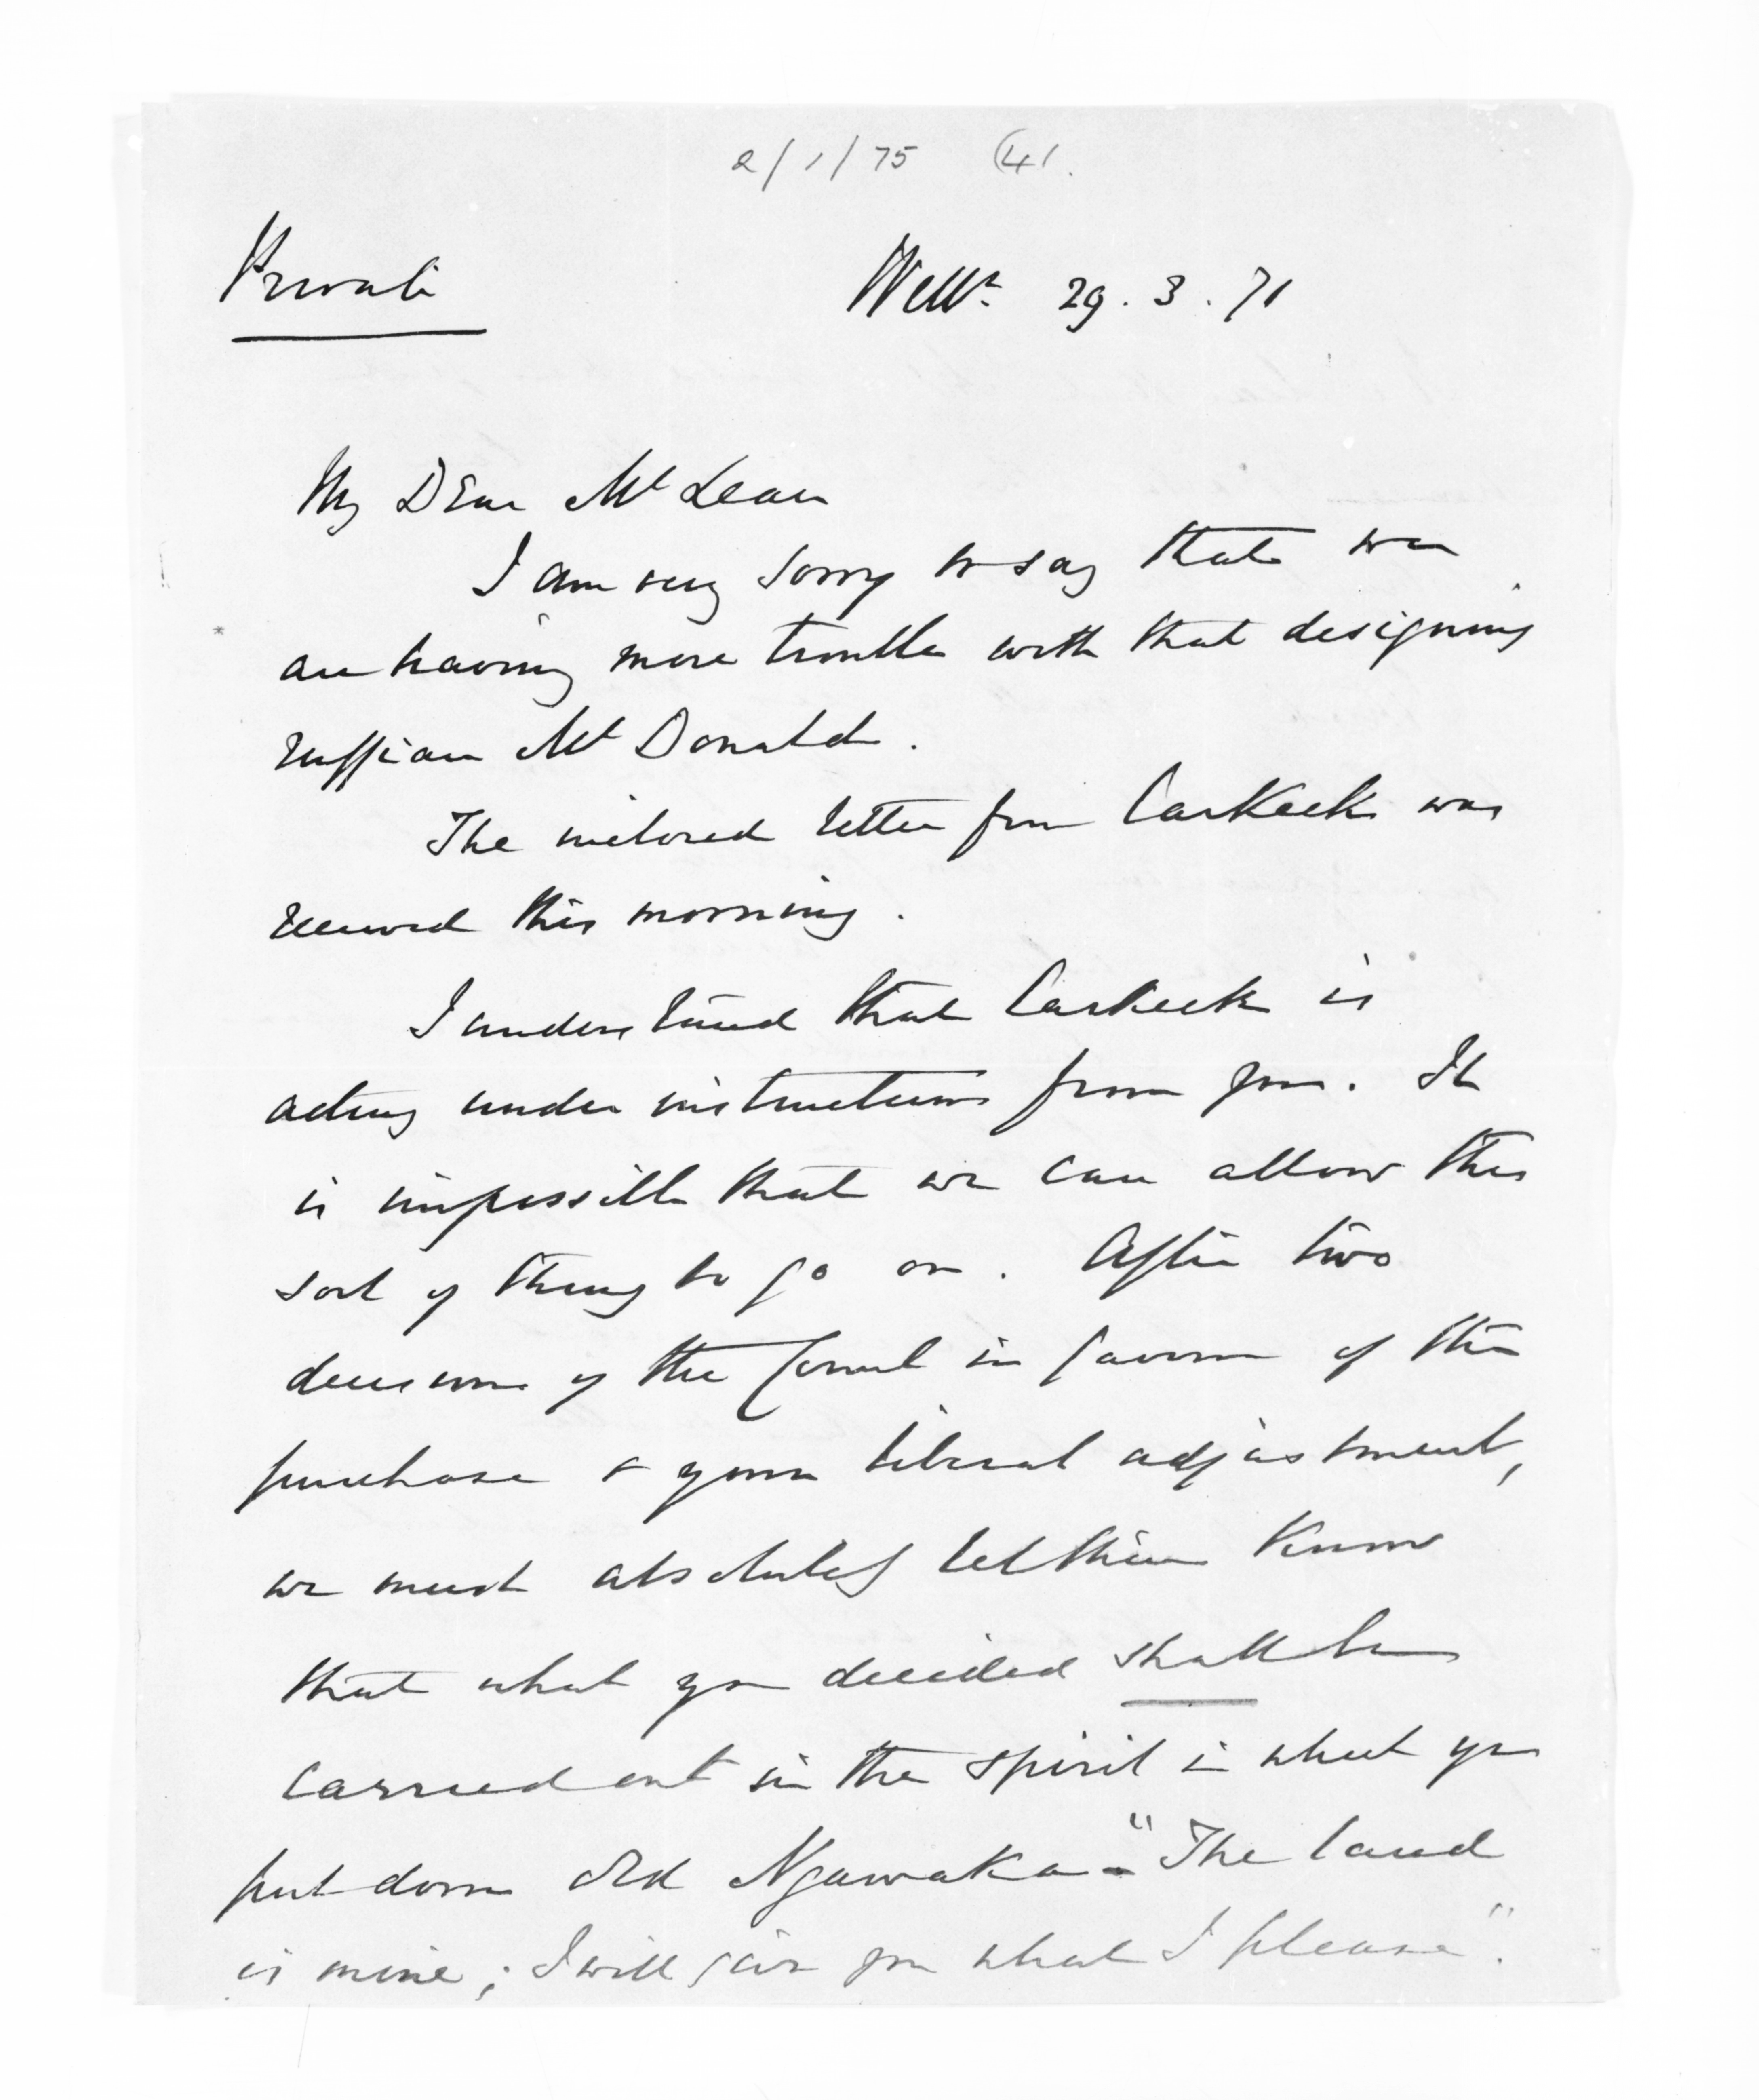 2/1/75 (41.
Private
Welln. 29.3.71
My Dear McLean
I am very sorry to say that we
are having more trouble with that designing
ruffian McDonald.
The inclosed letter from Carkeek was
received this morning.
I understand that Carkeek is
acting under instructions from you. It
is impossible that we can allow this
sort of thing to go on. After two
decisions of the Court in favour of the
purchase & your liberal adjustment,
we must absolutely let them know
that what you decided shall be
carried out in the spirit in which you
put down Old Ngawaka - "The land
is mine; I will give you what I please".